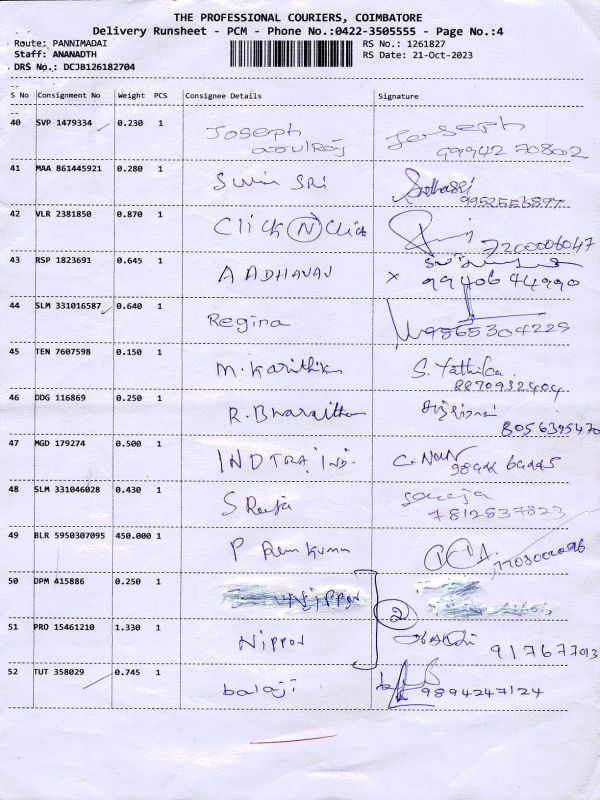 THE PROFESSIONAL COURIERS, COIMBATORE
Delivery Runsheet - PCM - Phone No.:0422-3505555 - Page No.:4
Route: PANNIMADAI RS No.: 1261827
Staff: ANANADTH RS Date: 21-Oct-2023
DRS No.: DCJB126182704
S No Consignment No Weight PCS Consignee Details Signature
40 SVP 1479334 0.230 1 Joseph Joseph
aroulraj 9994270802
41 MAA 861445921 0.280 1 SRI
9952556897
42 VLR 2381850 0.870 1 Click N Click
7200006047
43 RSP 1823691 0.645 1 AADHAVAN X
9940644990
44 SLM 331016587 0.640 1 Regina 9865304229
45 TEN 7607598 0.150 1 M. Karithik S. Yathika
8870932404
46 DDG 116869 0.250 1 R.
8056395470
47 MGD 179274 0.500 1 INDTRA Ind.
48 SLM 331046028 0.430 1 S
7812837823
49 BLR 5950307095 450.000 1 P Ramkumar
50 DPM 415886 0.250 1 Nippon
2
51 PRO 15461210 1.330 1 Nippon 917677013
52 TUT 358029 0.745 1 balaji 9894247124